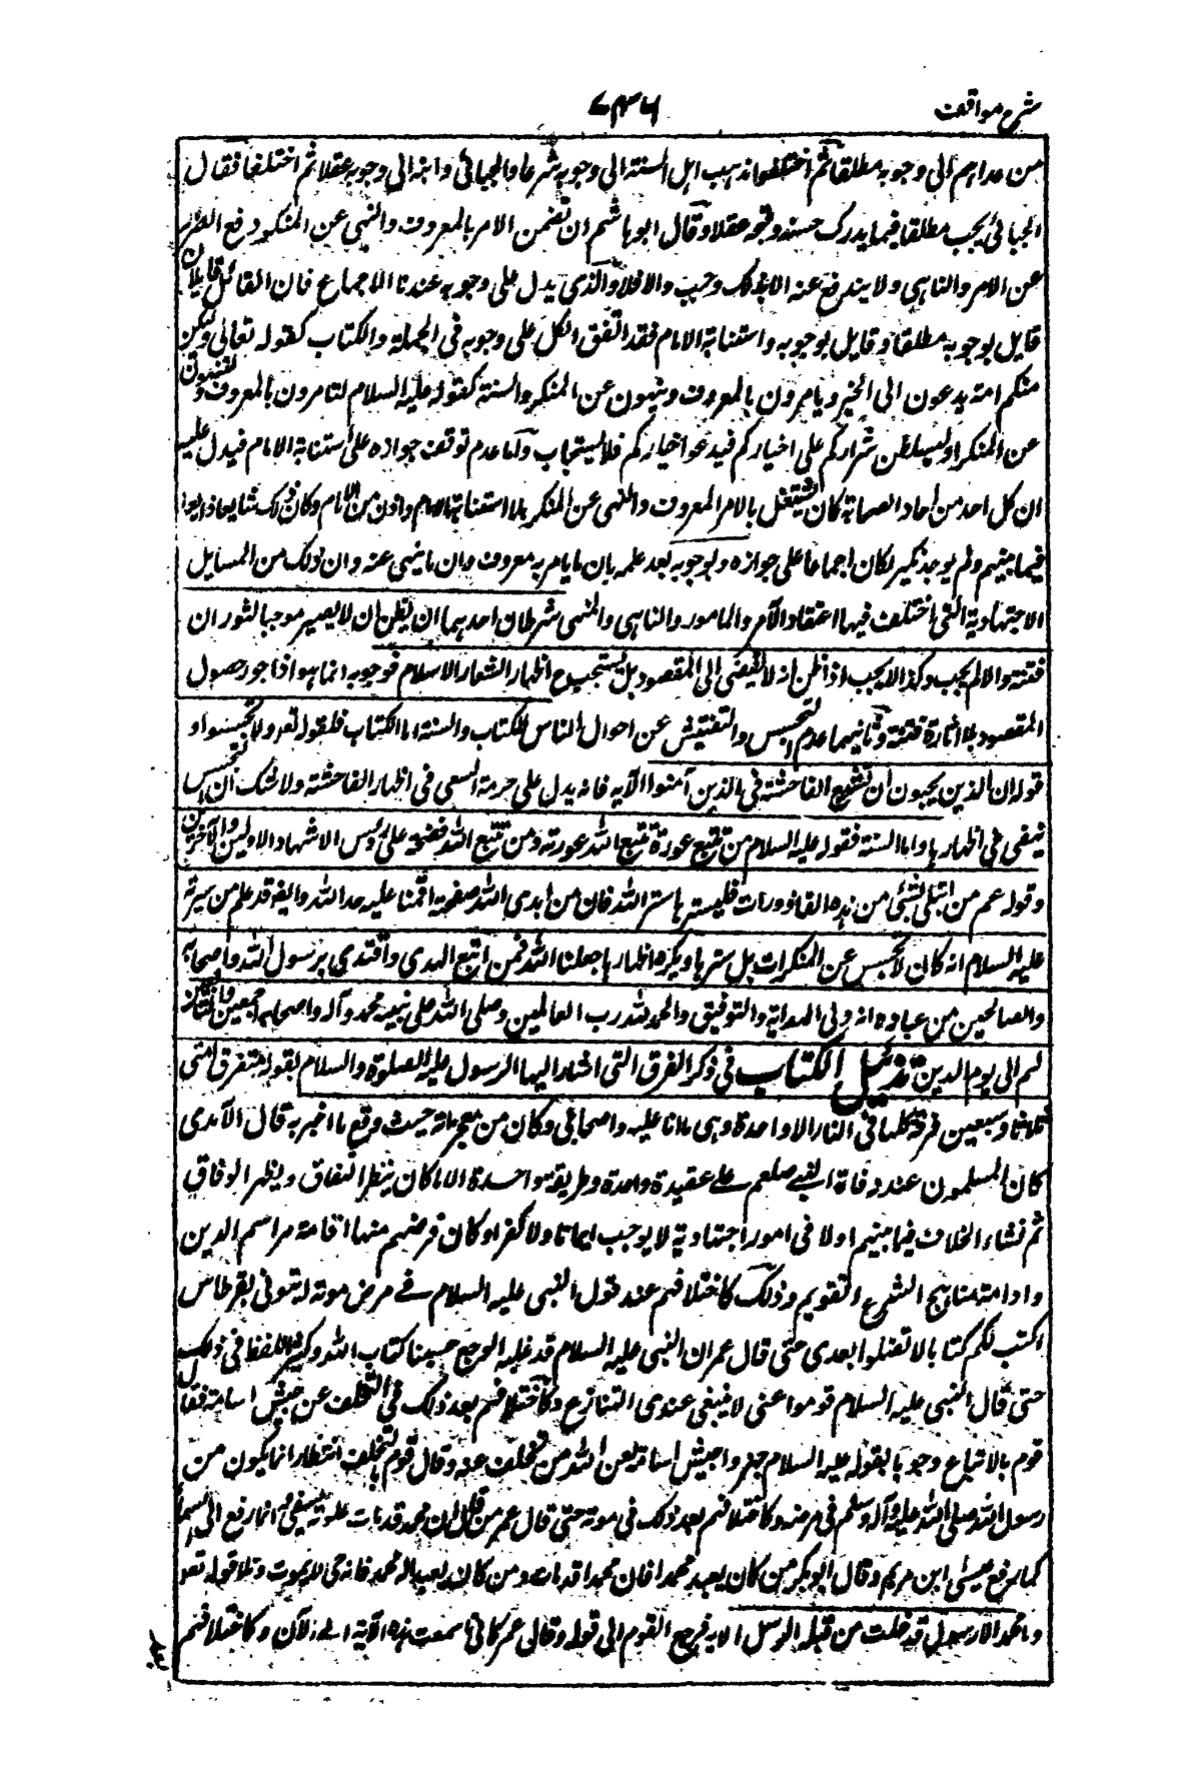 شرح مواقف
۷۴۶
من عداهم الى وجوبه مطلقا ثم اختلفوا فذهب اهل السنة الى وجوبه شرعا والجبائى وابنه الى وجوبه عقلا ثم اختلفا فقال
الجبائى يجب مطلقا فيما يدرك حسنه وقبحه عقلا وقال ابو هاشم ان تضمن الامر بالمعروف والنهى عن المنكر دفع الضرر
عن الامر والناهى ولا يندفع عنه الا بذلك وجب والا فلا والذى يدل على وجوبه عندنا الاجماع فان القائل قايلان
قايل بوجوبه مطلقا وقايل بوجوبه واستنابة الامام فقد اتفق الكل على وجوبه فى الجملة والكتاب كقوله تعالى ولتكن
منكم امة يدعون الى الخير ويامرون بالمعروف وينهون عن المنكر والسنة كقوله عليه السلام لتامرون بالمعروف ولتنهون
عن المنكر او ليسلطن شراركم على اخياركم فيدعو اخياركم فلا يستجاب واما عدم توقف جوازه على استنابة الامام فيدل عليه
ان كل احد من احاد الصحابة كان يشتغل بالامر المعروف والنهى عن المنكر بلا استنابة الامام واذن من الامام وكان ذلك شايعا ذايعا
فيما بينهم ولم يوجد نكير لكان اجماعا على جوازه ووجوبه بعد علمه بان ما يامر به معروف وان ما ينهى عنه وان ذلك من المسايل
الاجتهادية التى اختلفت فيها اعتقاد الآمر والمامور والناهى والمنهى شرطان احدهما ان يظن ان لا يصير موجبا لثوران
فتنة والا لم يجب وكذا لا يجب اذا ظن انه لا يفضى الى المقصود بل يستحب ح اظهار الشعار الاسلام فوجوبه انما هو اذا جوز حصول
المقصود بلا اثارة فتنة وثانيهما عدم التجسس والتفتيش عن احوال الناس للكتاب والسنة اما الكتاب فلقوله تعه ولا تجسسوا و
قوله ان الذين يحبون ان تشيع الفاحشة فى الذين آمنوا الآيه فانه يدل على حرمة السعى فى اظهار الفاحشة ولا شك ان التجسس
يسعى فى اظهارها واما السنة فقوله عليه السلام من تتبع عورة تتبع الله عورته ومن تتبع الله فضحه على رؤس الاشهاد الاولين والآخرين
وقوله عم من ابتلى بشئ من هذه القاذورات فليسترها ستر الله فان من ابدى الله صفحته اقمنا عليه حد الله وايضا قد علم من سيرته
عليه السلام انه كان لا تجسس عن المنكرات بل سترها ويكره اظهارها جعلنا الله فمن اتبع الهدى واقتدى برسول الله واصحابه
والصالحين من عباده انه ولى الهداية والتوفيق والحمد لله رب العالمين وصلى الله على نبيه محمد وآله واصحابه اجمعين والتابعين
لهم الى يوم الدين تذييل الكتاب فى ذكر الفرق التى اشار اليها الرسول عليه الصلوة والسلام بقوله ستفرق امتى
ثلاثا وسبعين فرقة كلها فى النار الا واحدة وهى ما انا عليه واصحابى وكان من معجزاته حيث وقع ما اخبر به قال الآمدى
كان المسلمون عند وفاة النبى صلعم على عقيدة واحدة وطريقة واحدة الا ما كان يبطن النفاق ويظهر الوفاق
ثم نشاء الخلاف فيما بينهم اولا فى امور اجتهادية لا يوجب ايمانا ولا كفرا وكان غرضهم منها اقامة مراسم الدين
وادامة مناهج الشرع القويم وذلك كاختلافهم عند قول النبى عليه السلام فى مرض موته ايتونى بقرطاس
اكتب لكم كتابا لا تضلوا بعدى حتى قال عمر ان النبى عليه السلام قد غلبه الوجع حسبنا كتاب الله وكثر اللفظ فى ذلك
حتى قال النبى عليه السلام قوموا عنى لا ينبغى عندى التنازع وكاختلافهم بعد ذلك فى التخلف عن جيش اسامة فقال
قوم بالاتباع وجوبا بقوله عليه السلام جهزوا جيش اسامة لعن الله من تخلف عنه وقال قوم بالتخلف انتظارا لما يكون من
رسول الله صلى الله عليه وآله وسلم فى مرضه وكاختلافهم بعد ذلك فى موته حتى قال عمر من قال ان محمد قد مات علوته بسيفى انما رفع الى السماء
كما رفع عيسى ابن مريم وقال ابو بكر من كان يعبد محمدا فان محمدا قد مات ومن كان يعبد اله محمد فانه حى لا يموت وتلا قوله تعه
وما محمد الا رسول قد خلت من قبله الرسل الايه فرجع القوم الى قوله وقال عمر كانى ما سمعت هذه الآية الى الآن وكاختلافهم